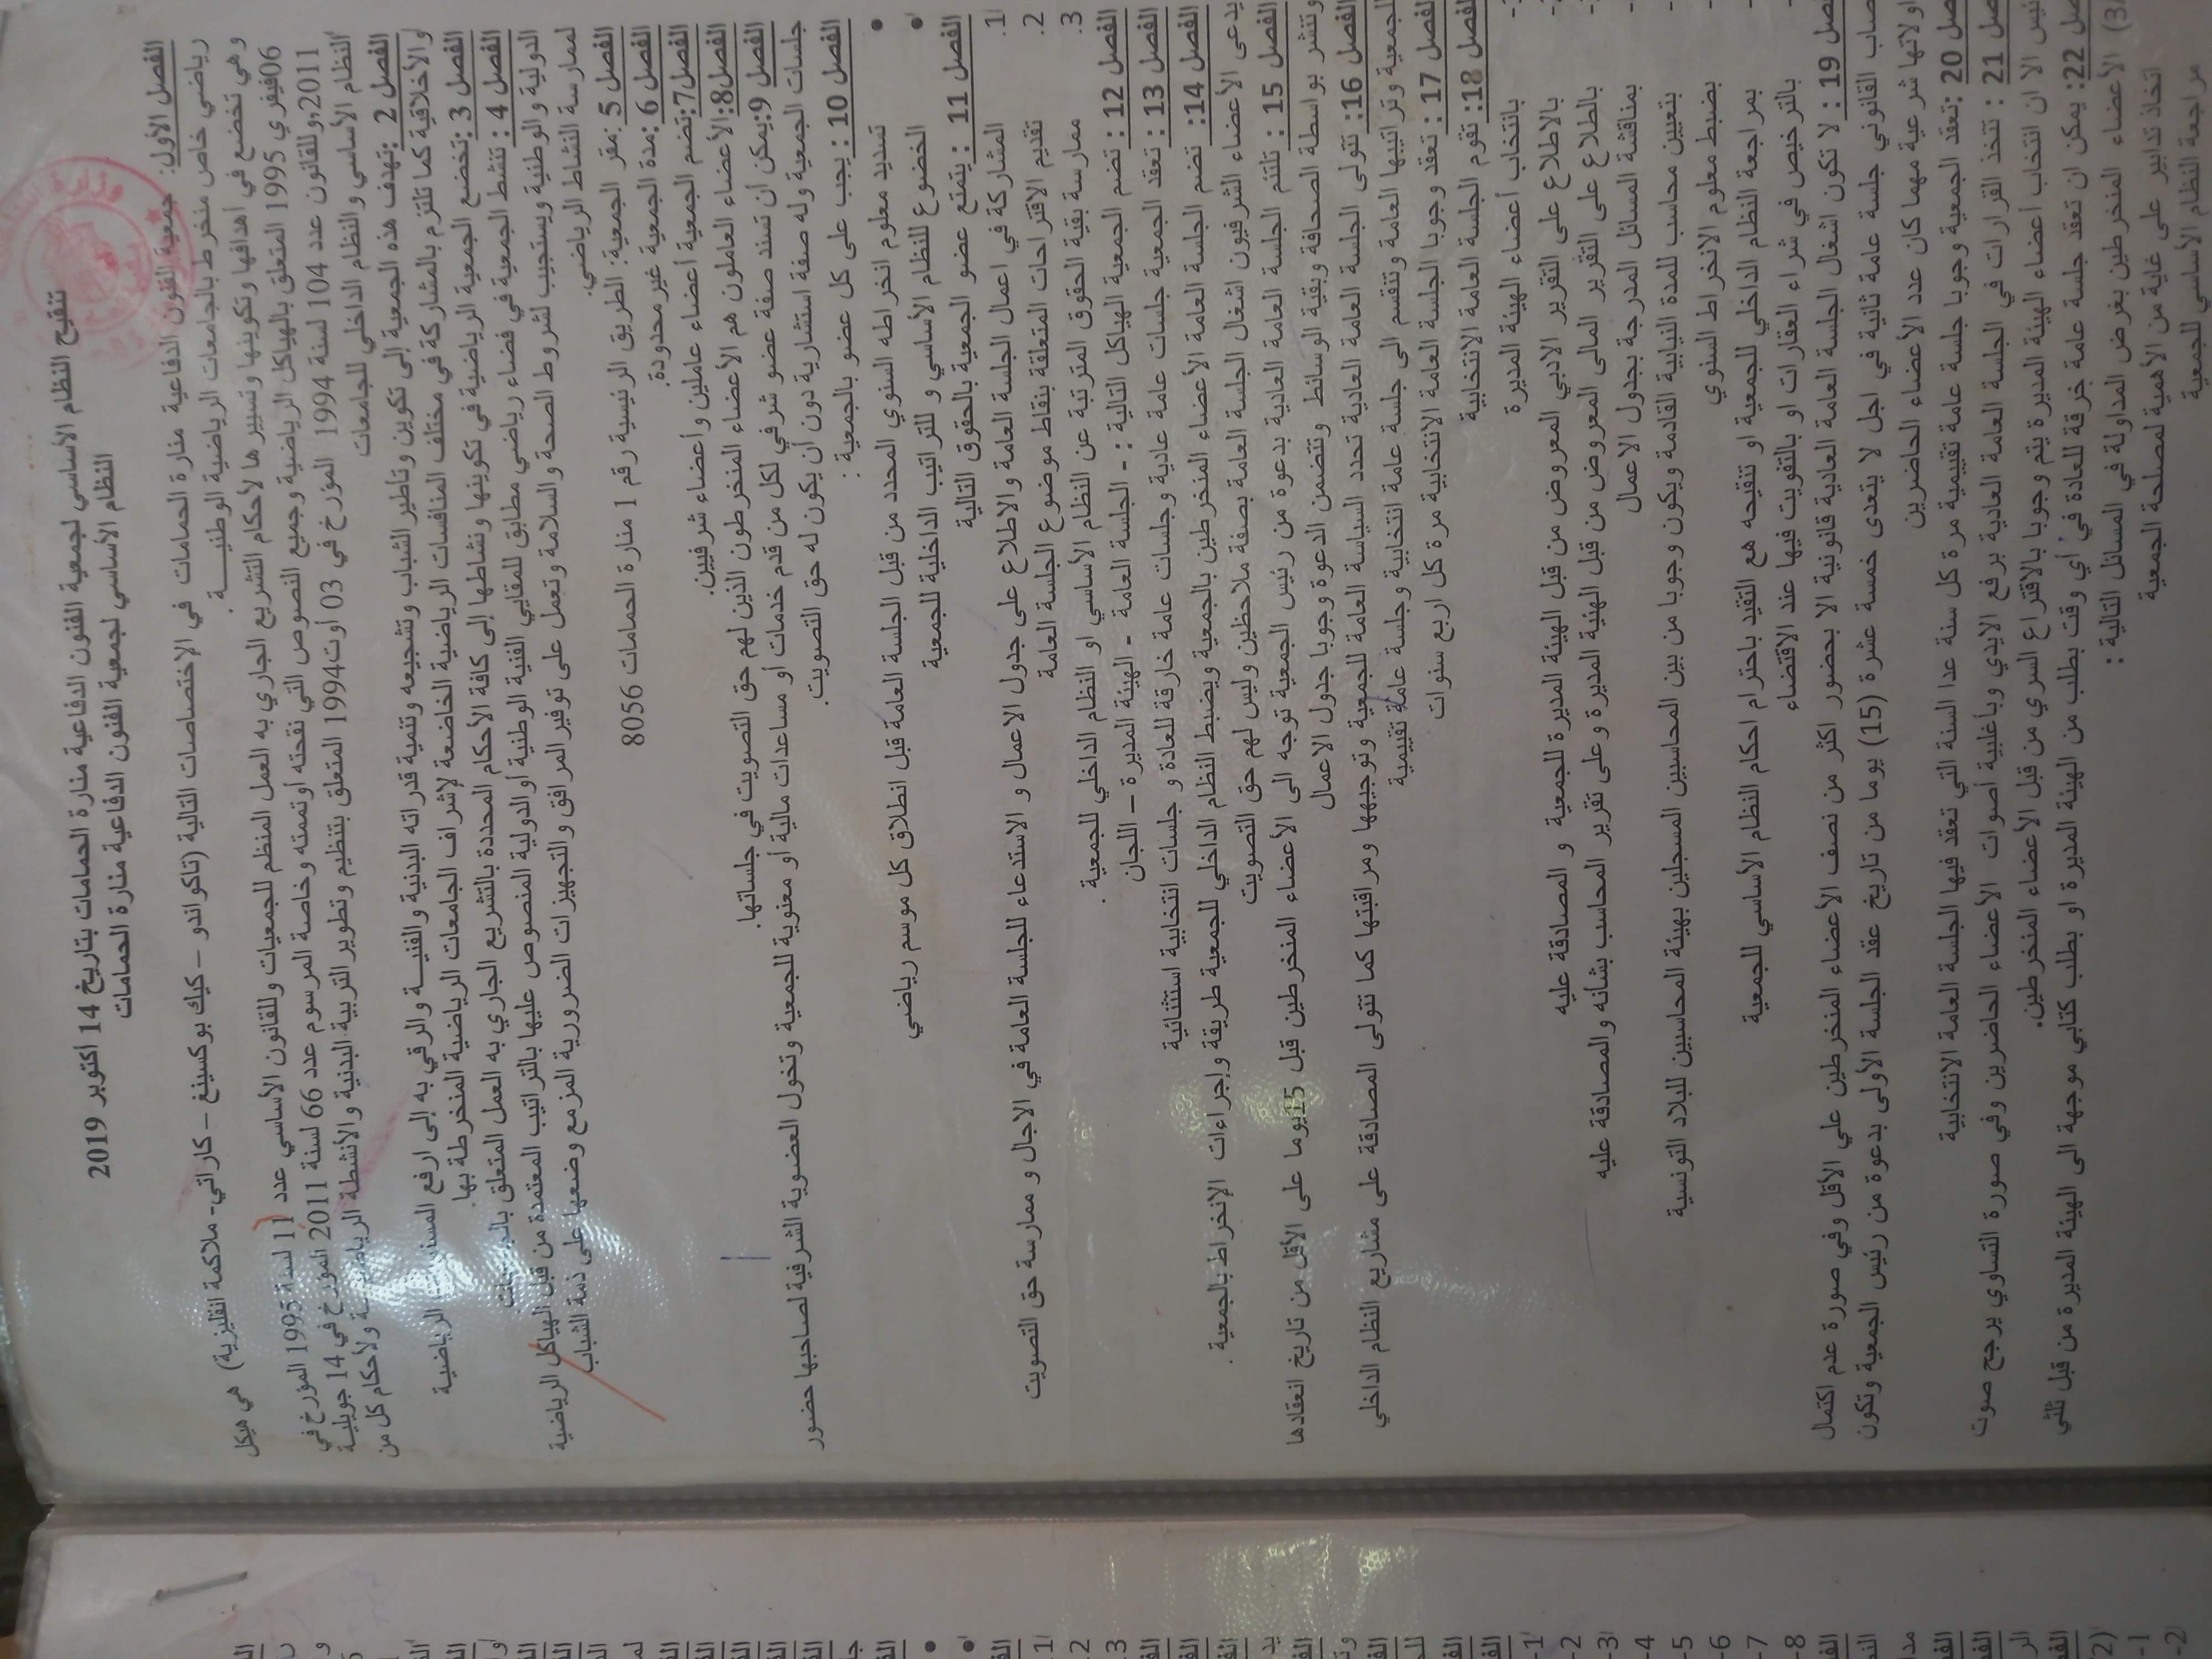 تنقيح النظام الأساسي لجمعية الفنون الدفاعية منارة الحمامات بتاريخ 14 اكتوبر 2019
النظام الأساسي لجمعية الفنون الدفاعية منارة الحمامات
الفصل الأول: جمعية الفنون الدفاعية منارة الحمامات في الإختصاصات التالية (تاكواندو – كيك بوكسينغ – كاراتي- ملاكمة انقليزية) هي هيكل
رياضي خاص منخرط بالجامعات الرياضية الوطنية.
وهي تخضع في أهدافها وتكوينها وتسييرها لأحكام التشريع الجاري به العمل المنظم للجمعيات وللقانون الأساسي عدد 11 لسنة 1995 المؤرخ في
06فيفري 1995 المتعلق بالهياكل الرياضية وجميع النصوص التي نقحته أوتممته وخاصة المرسوم عدد 66 لسنة 2011 المؤرخ في 14 جويلية
2011,وللقانون عدد 104 لسنة 1994 المؤرخ في 03 أوت1994 المتعلق بتنظيم وتطوير التربية البدنية والأنشطة الرياضية ولأحكام كل من
النظام الأساسي والنظام الداخلي للجامعات
الفصل 2 :تهدف هذه الجمعية إلى تكوين وتأطير الشباب وتشجيعه وتنمية قدراته البدنية والفنية والرقي به إلى ارفع المستويات الرياضية
والأخلاقية كما تلتزم بالمشاركة في مختلف المنافسات الرياضية الخاضعة لإشراف الجامعات الرياضية المنخرطة بها.
الفصل 3 :تخضع الجمعية الرياضية في تكوينها ونشاطها إلى كافة الأحكام المحددة بالتشريع الجاري به العمل المتعلق بالجمعيات.
الفصل 4 : تنشط الجمعية في فضاء رياضي مطابق للمقاييس الفنية الوطنية أوالدولية المنصوص عليها بالتراتيب المعتمدة من قبل الهياكل الرياضية
الدولية والوطنية ويستجيب لشروط الصحة والسلامة وتعمل على توفير المرافق والتجهيزات الضرورية المزمع وضعها على ذمة الشباب
لممارسة النشاط الرياضي.
الفصل 5 :مقر الجمعية: الطريق الرئيسية رقم 1 منارة الحمامات 8056
الفصل 6 :مدة الجمعية غير محدودة.
الفصل7:تضم الجمعية أعضاء عاملين وأعضاء شرفيين.
الفصل8:الأعضاء العاملون هم الأعضاء المنخرطون الذين لهم حق التصويت في جلساتها.
الفصل 9:يمكن أن تسند صفة عضو شرفي لكل من قدم خدمات أو مساعدات مالية أو معنوية للجمعية وتخول العضوية الشرفية لصاحبها حضور
جلسات الجمعية وله صفة استشارية دون أن يكون له حق التصويت.
الفصل 10 : يجب على كل عضو بالجمعية :
• تسديد معلوم انخراطه السنوي المحدد من قبل الجلسة العامة قبل انطلاق كل موسم رياضي
• الخضوع للنظام الأساسي و للتراتيب الداخلية للجمعية
الفصل 11 : يتمتع عضو الجمعية بالحقوق التالية
1. المشاركة في اعمال الجلسة العامة والاطلاع على جدول الاعمال و الاستدعاء للجلسة العامة في الاجال و ممارسة حق التصويت
2. تقديم الاقتراحات المتعلقة بنقاط موضوع الجلسة العامة
3. ممارسة بقية الحقوق المترتبة عن النظام الأساسي او النظام الداخلي للجمعية .
الفصل 12 : تضم الجمعية الهياكل التالية : - الجلسة العامة - الهيئة المديرة – اللجان
الفصل 13 : تعقد الجمعية جلسات عامة عادية وجلسات عامة خارقة للعادة و جلسات انتخابية استثنائية
الفصل 14: تضم الجلسة العامة الأعضاء المنخرطين بالجمعية ويضبط النظام الداخلي للجمعية طريقة وإجراءات الإنخراط بالجمعية .
يدعى الأعضاء الشرفيون اشغال الجلسة العامة بصفة ملاحظين وليس لهم حق التصويت
الفصل 15 : تلتئم الجلسة العامة العادية بدعوة من رئيس الجمعية توجه الى الأعضاء المنخرطين قبل 15يوما على الأقل من تاريخ انعقادها
وتنشر بواسطة الصحافة وبقية الوسائط وتتضمن الدعوة وجوبا جدول الاعمال
الفصل 16: تتولى الجلسة العامة العادية تحدد السياسة العامة للجمعية وتوجيهها ومراقبتها كما تتولى المصادقة على مشاريع النظام الداخلي
للجمعية وتراتيبها العامة وتنقسم الى جلسة عامة انتخابية وجلسة عامة تقييمية
الفصل 17 : تعقد وجوبا الجلسة العامة الانتخابية مرة كل اربع سنوات
الفصل 18: تقوم الجلسة العامة الانتخابية
- بانتخاب أعضاء الهيئة المديرة
- بالاطلاع على التقرير الادبي المعروض من قبل الهيئة المديرة للجمعية و المصادقة عليه
- بالطلاع على التقرير المالي المعروض من قبل الهئية المديرة و على تقرير المحاسب بشأنه والمصادقة عليه
- بمناقشة المسائل المدرجة بجدول الاعمال
- بتعيين محاسب للمدة النيابية القادمة ويكون وجوبا من بين المحاسبين المسجلين بهيئة المحاسبين للبلاد التونسية
- بضبط معلوم الانخراط السنوي
- بمراجعة النظام الداخلي للجمعية او تنقيحه هع التقيد باحترام احكام النظام الأساسي للجمعية
بالترخيص في شراء العقارات او بالتفويت فيها عند الاقتضاء
الفصل 19 : لا تكون اشغال الجلسة العامة العادية قانونية الا بحضور اكثر من نصف الأعضاء المنخرطين علي الأقل وفي صورة عدم اكتمال
النصاب القانوني جلسة عامة ثانية في اجل لا يتعدى خمسة عشرة (15) يوما من تاريخ عقد الجلسة الأولى بدعوة من رئيس الجمعية وتكون
مداولاتها شرعية مهما كان عدد الأعضاء الحاضرين
الفصل 20 :تعقد الجمعية وجوبا جلسة عامة تقييمية مرة كل سنة عدا السنة التي تعقد فيها الجلسة العامة الانتخابية
الفصل 21 : تتخذ القرارات في الجلسة العامة العادية برفع الايدي وبأغلبية أصوات الأعضاء الحاضرين وفي صورة التساوي يرجح صوت
الرئيس الا ان انتخاب أعضاء الهيئة المديرة يتم وجوبا بالاقتراع السري من قبل الأعضاء المنخرطين.
الفصل 22: يمكن ان تعقد جلسة عامة خرقة للعادة في أي وقت بطلب من الهيئة المديرة او بطلب كتابي موجهة الى الهيئة المديرة من قبل ثلثي
الأعضاء المنخرطين بغرض المداولة في المسائل التالية :
اتخاذ تدابير على غاية من الأهمية لمصلحة الجمعية
مراجعة النظام الأساسي للجمعية